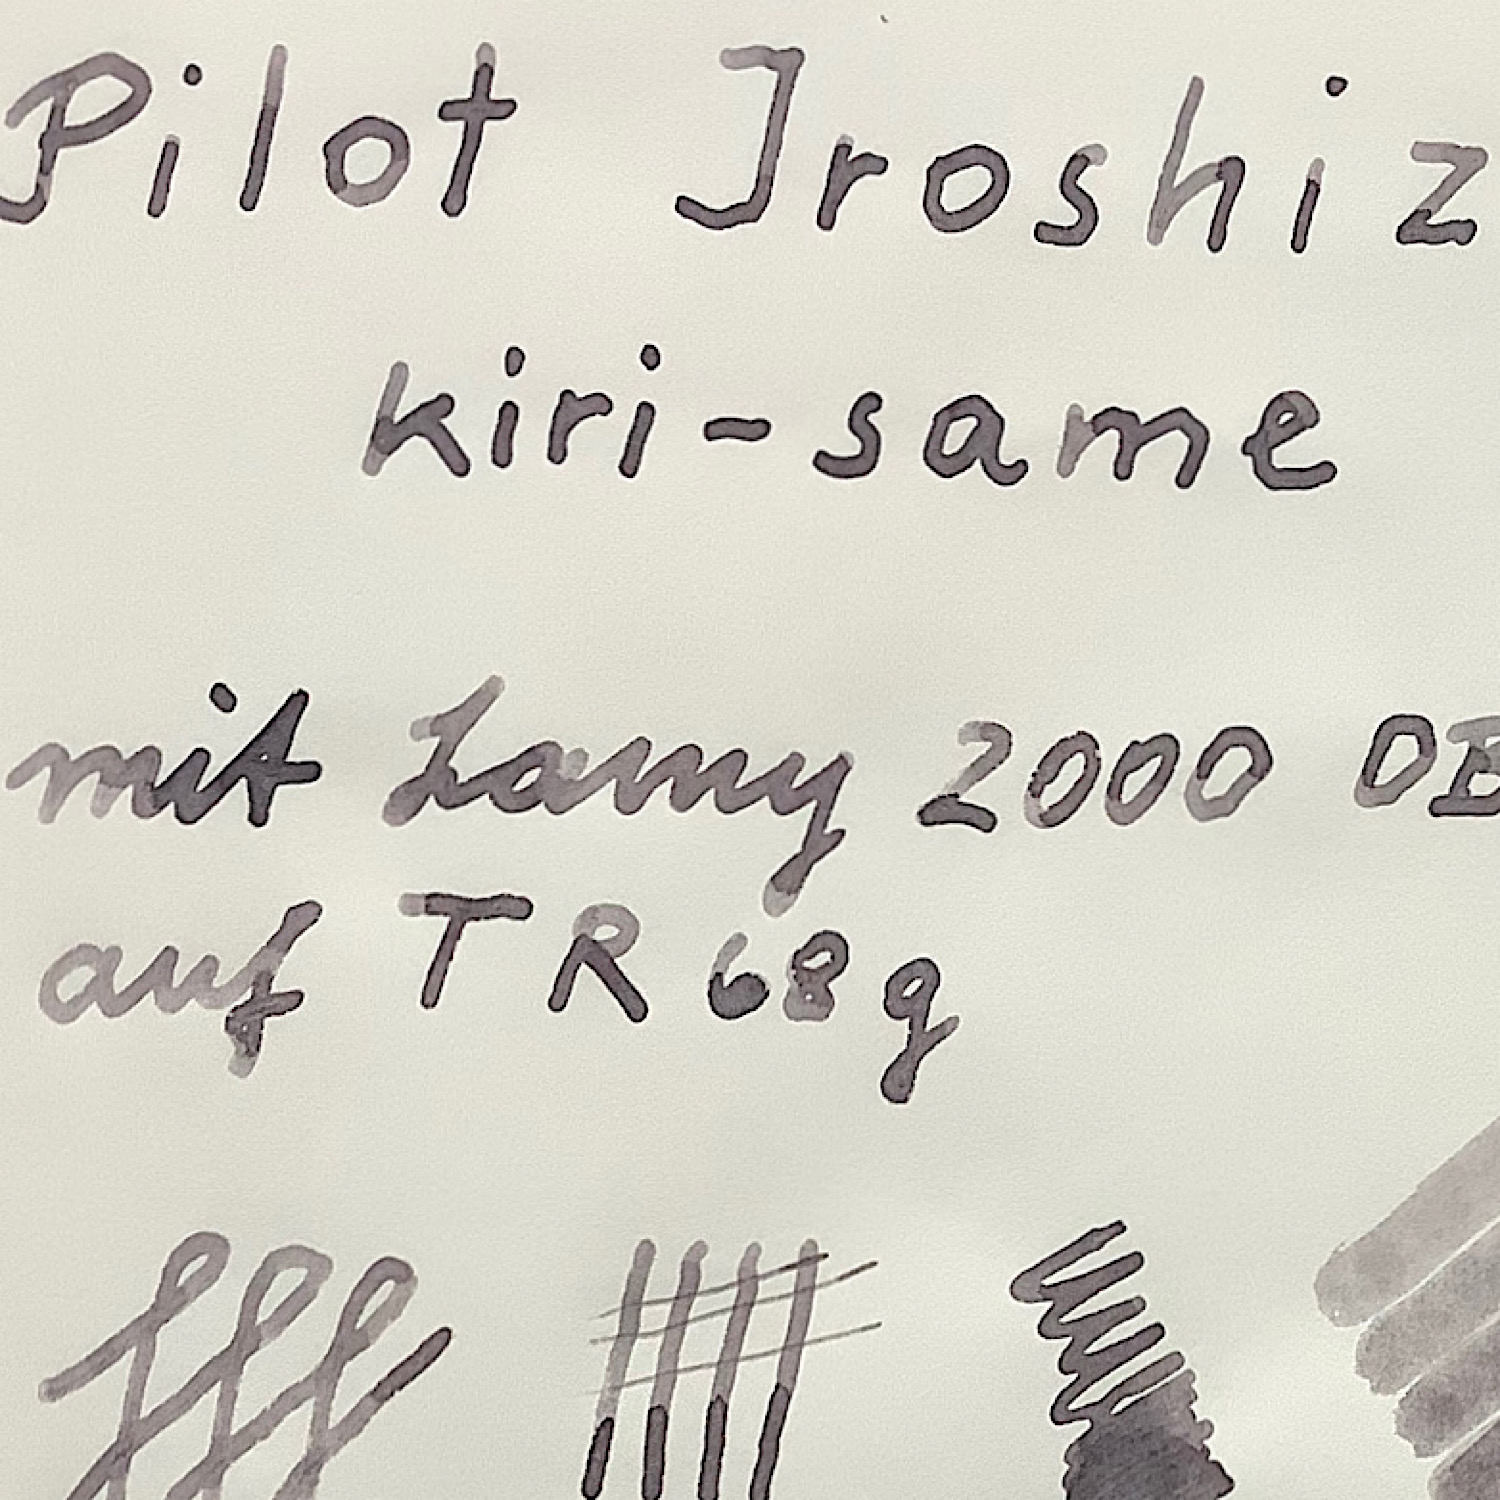 Pilot Iroshiz
kiri-same
mit Lamy 2000 OB
auf TR 68g